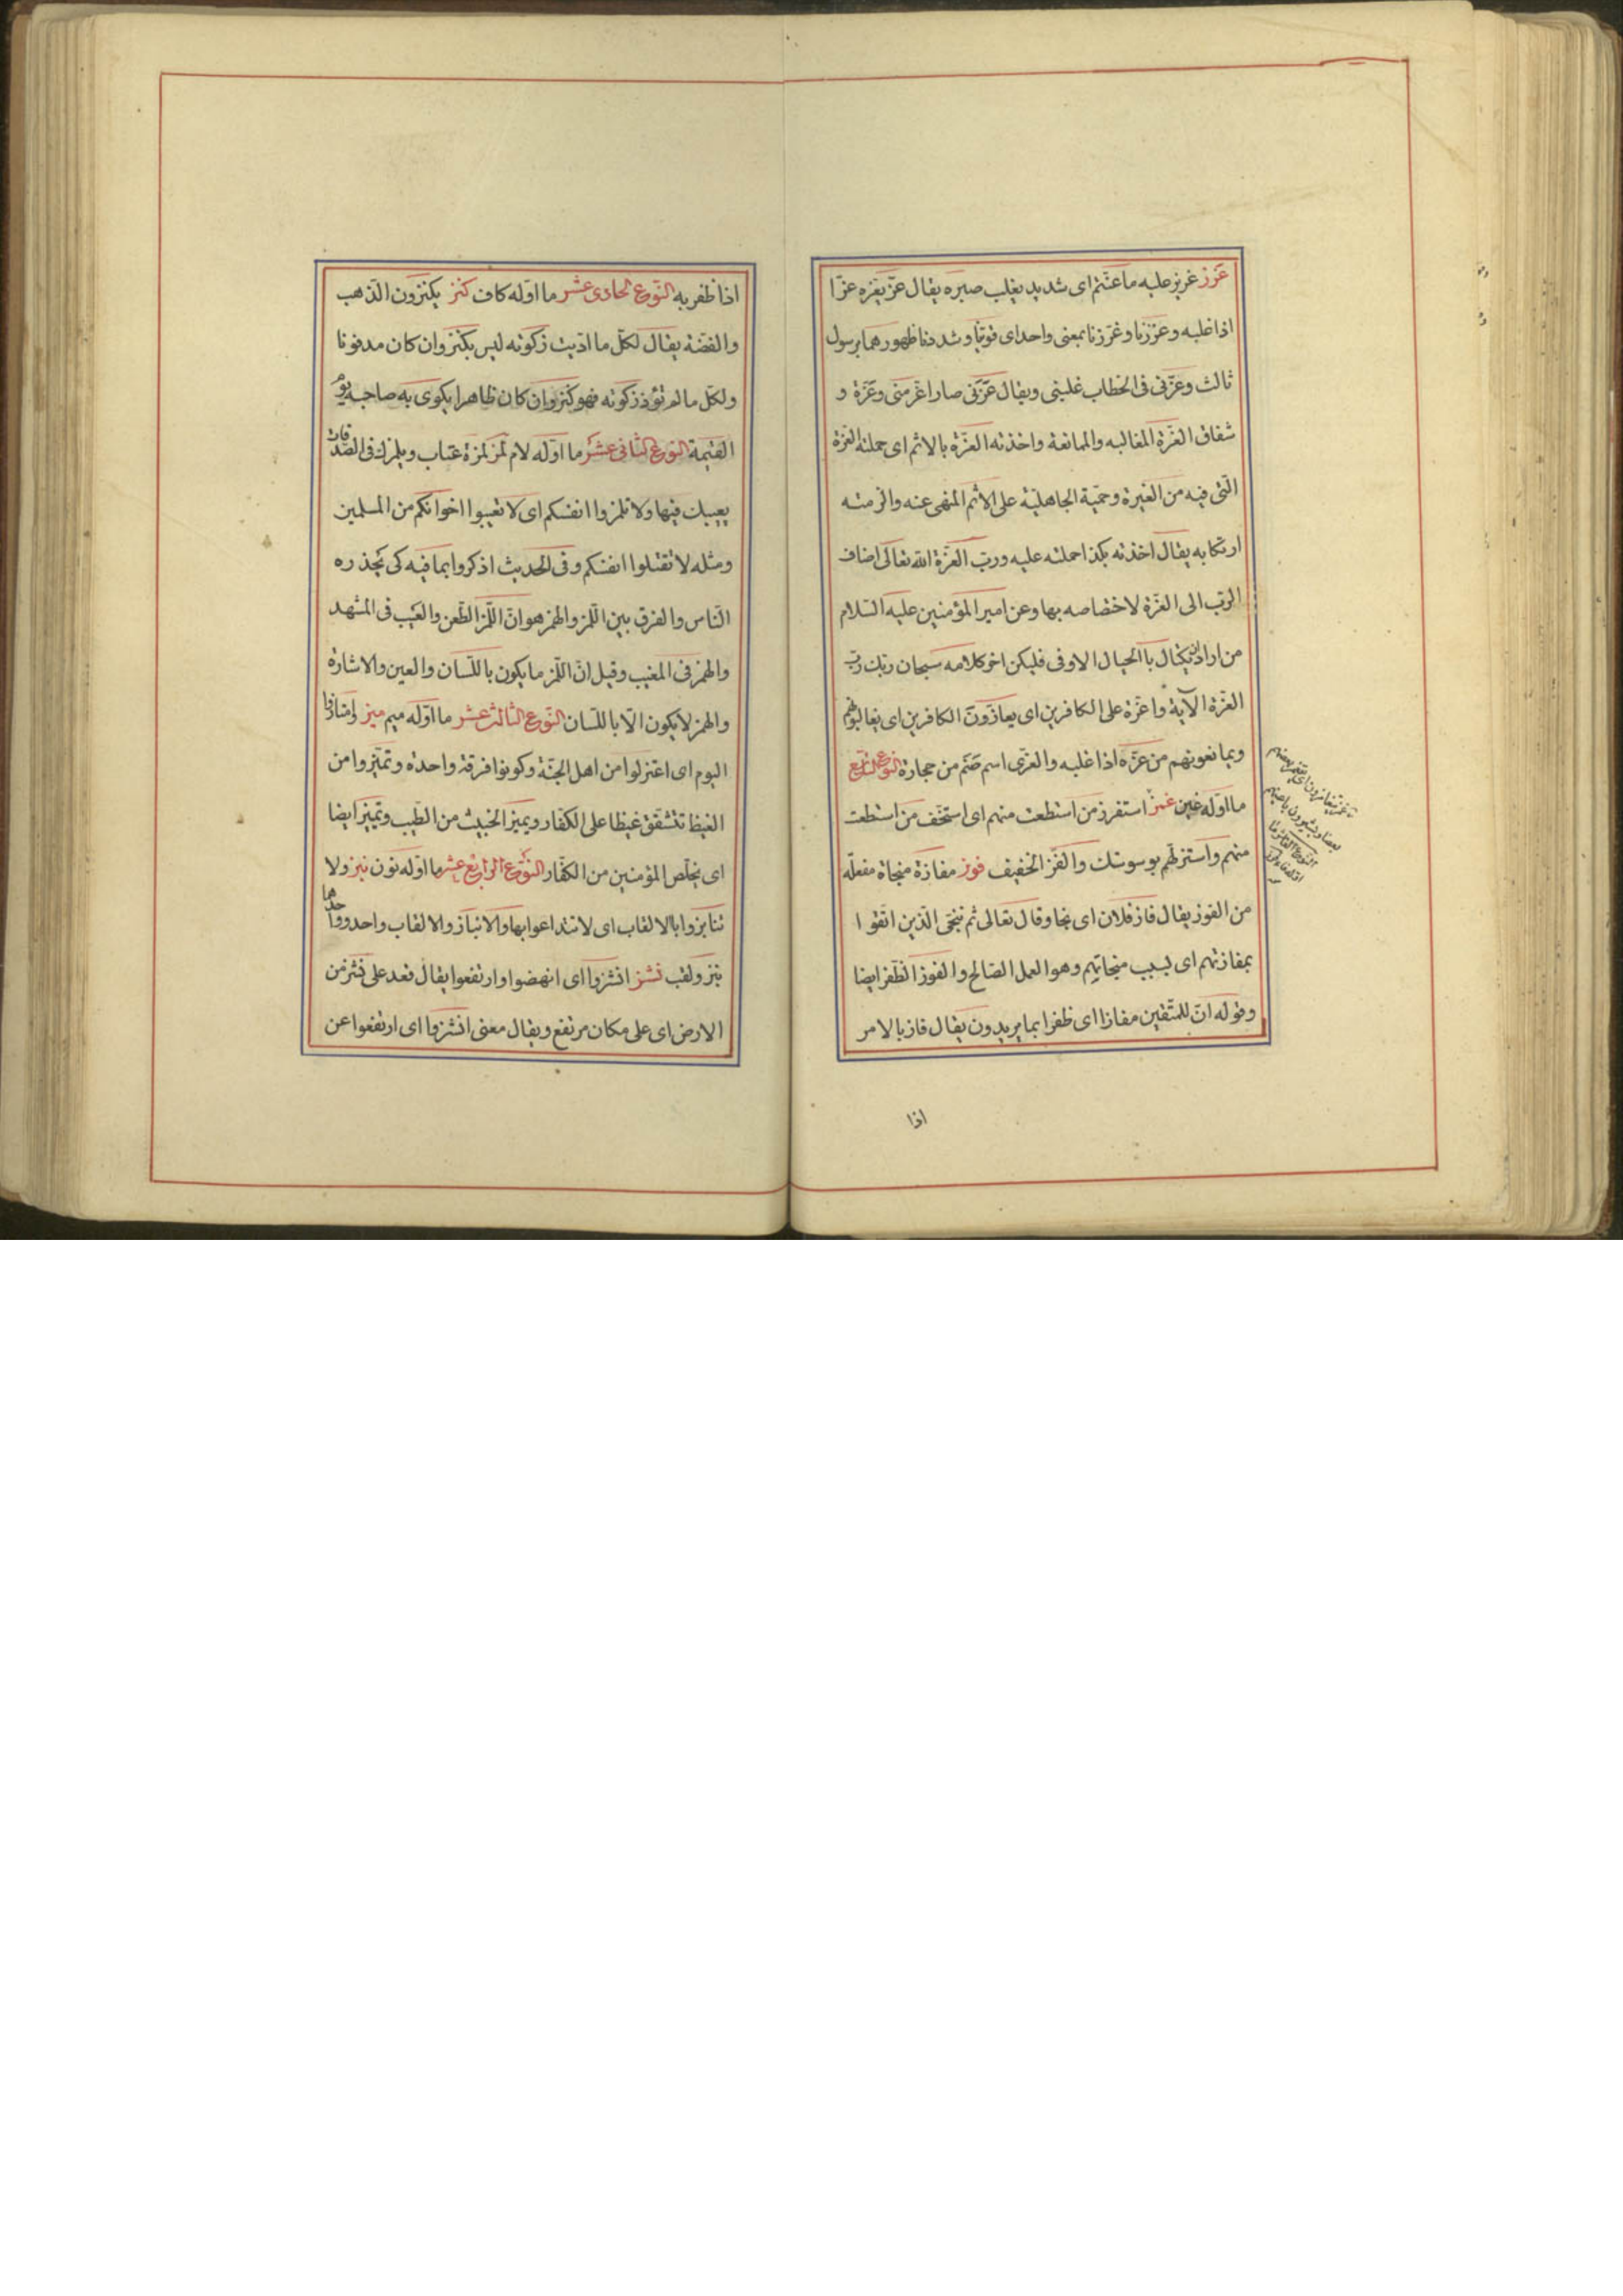 عزز عزيز عليه ما عنتم اى شديد يغلب صبره يقال عزّ يعزه عزّا
اذا غلبه وعززنا وعزّزنا بمعنى واحد اى قوّينا وشددنا ظهورهما برسول
ثالث وعزّنى فى الخطاب غلبنى ويقال عزّنى صار اعز منى وعزّة و
شقاق العزّة المغالبه والممانعة واخذته العزّة بالاثم اى حملته العزة
الّتى فيه من الغيرة وحميّة الجاهليّة على الاثم المنهى عنه والزمته
ارتكابه يقال اخذته بكذا حملته عليه وربّ العزّة الله تعالى اضاف
الربّ الى العزّة لاختصاصه بها وعن امير المؤمنين عليه السّلام
من اراد ان يكتال باالكيال الاوفى فليكن اخر كلامه سبحان ربّك ربّ
العزّة الآية واعزّة على الكافرين اى يعازّون الكافرين اى يغالبونهم
ويمانعونهم من عزّه اذا غلبه والعزّى اسم صنم من حجارة النوع التاسع
ما اوّله غين غمز استفزز من استطعت منهم اى استخف من استطعت
منهم واستزلّهم بوسوستك والفزّ الخفيف فوز مفازة منجاة مفعلة
من الفوز يقال فاز فلان اى نجا وقال تعالى ثم ننجّى الّذين اتقوا
بمفازتهم اى بسبب منجاتهم وهو العمل الصّالح والفوز الظّفر ايضا
وقوله انّ للمتّقين مفازا اى ظفرا بما يريدون يقال فاز بالامر
اذا
اذا ظفر به النّوع الحادى عشر ما اوّله كاف كنز يكنزون الذّهب
والفضّة يقال لكلّ ما ادّيت زكوته ليس بكنز وان كان مدفونا
ولكلّ ما لم تؤدّ زكوته فهو كنز وان كان ظاهرا يكوى به صاحبه يوم
القيمة النوع الثّانى عشر ما اوّله لام لمز لمزة عتاب ويلمزك فى الصّدقات
يعيبك فيها ولا تلمزوا انفسكم اى لا تعيبوا اخوانكم من المسلمين
ومثله لا تقتلوا انفسكم وفى الحديث اذكروا بما فيه كى يحذره
النّاس والفرق بين اللّمز والهمز هو انّ اللّمز الطّعن والعيب فى المشهد
والهمز فى المغيب وقيل انّ اللّمز ما يكون باللّسان والعين والاشارة
والهمز لا يكون الّا باللّسان النّوع الثّالث عشر ما اوّله ميم ميز وامتازوا
اليوم اى اعتزلوا من اهل الجنّة وكونوا فرقة واحدة وتميّزوا من
الغيظ تتشقق غيظا على الكفّار ويميز الخبيث من الطّيب وتميز ايضا
اى يخلّص المؤمنين من الكفّار النّوع الرّابع عشر ما اوّله نون نبز ولا
تنابزوا بالالقاب اى لا تتداعوا بها والانباز والالقاب واحد وواحدها
نبز ولقب نشز انشزوا اى انهضوا وارتفعوا يقال قعد على نشز من
الارض اى على مكان مرتفع ويقال معنى انشزوا اى ارتفعوا عن